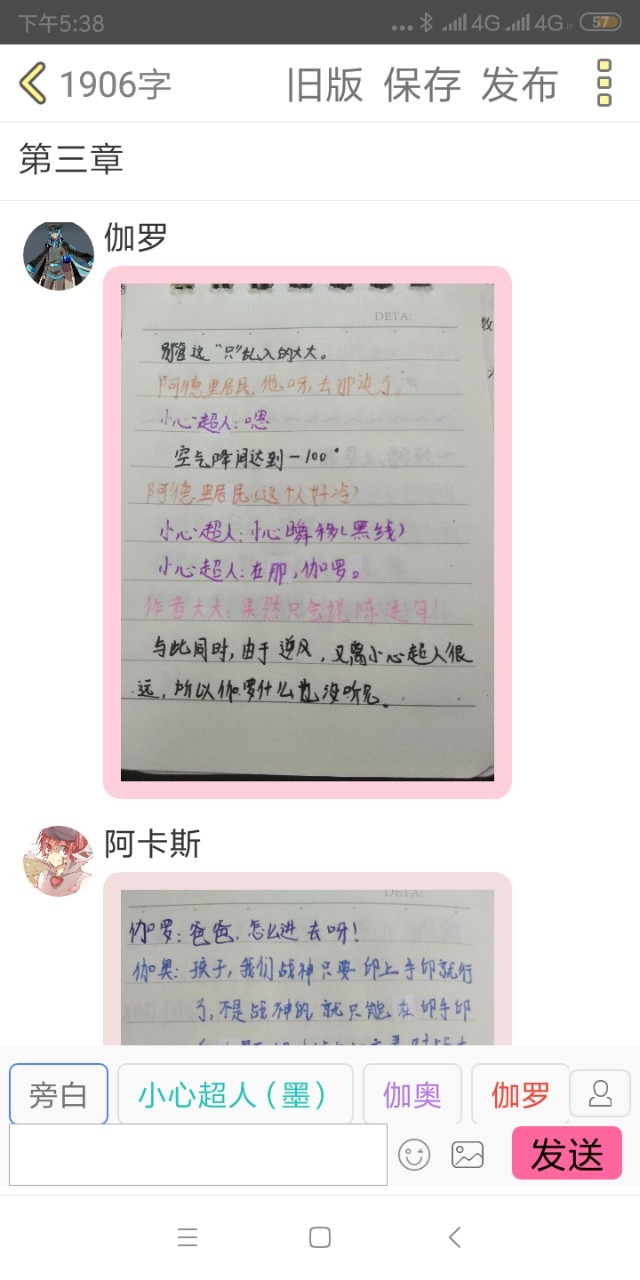 下午5:38
4G
4G
57
1906字
旧版 保存 发布
第三章
伽罗
DETA:
别管这“只”乱入的大大。
阿德里居民:他呀,去那边了。
小心超人:嗯
空气降间达到-100°
阿德里居民:(这个人好冷)
小心超人:小心瞬移(黑线)
小心超人:在那,伽罗。
作者大大:果然只会说陈述句!
与此同时,由于逆风,又离小心超人很
远,所以伽罗什么也没听见。
阿卡斯
DETA:
伽罗:爸爸,怎么进去呀!
伽奥:孩子,我们战神只要印上手印就行
了,不是战神的就只能在印手印
旁白
小心超人(墨)
伽奥
伽罗
发送